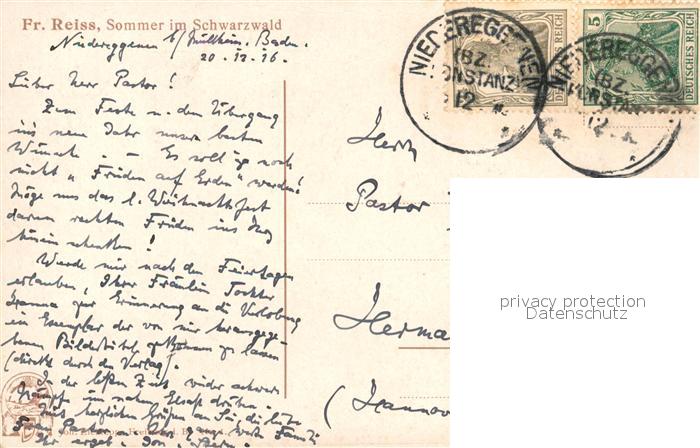 Fr. Reiss, Sommer im Schwarzwald
Niedereggenen b/ Müllheim. Baden.
20.12.16.
Lieber Herr Pastor!
Zum Feste u. den Übergang
ins neue Jahr unsre besten
Wünsche. – Es soll ja noch
nicht „Frieden auf Erden“ werden!
Möge uns das l. Weihnachtsfest
darum rechten Frieden ins Herz
hinein schenken!
Würde mir nach den Feiertagen
erlauben, Ihrer Fräulein Tochter
Hanna zur Erinnerung an die Verlobung
ein Exemplar der von mir herausgege-
benen Bildertitel zukommen zu lassen
(direkt durch den Verlag).
In der letzten Zeit wieder schwere
Kämpfe im nahen Elsaß drüben.
Mit herzlichen Grüßen an Sie, die liebe
Frau Pastor
Herrn
Pastor
Herma
(Hannov
NIEDEREGGENEN
(BZ.
KONSTANZ)
12
DEUTSCHES REICH
NIEDEREGGEN
(BZ.
KONSTA
12
5
DEUTSCHES REICH
privacy protection
Datenschutz